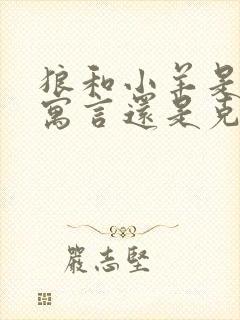 狼和小羊是
寓言還是克
嚴志堅